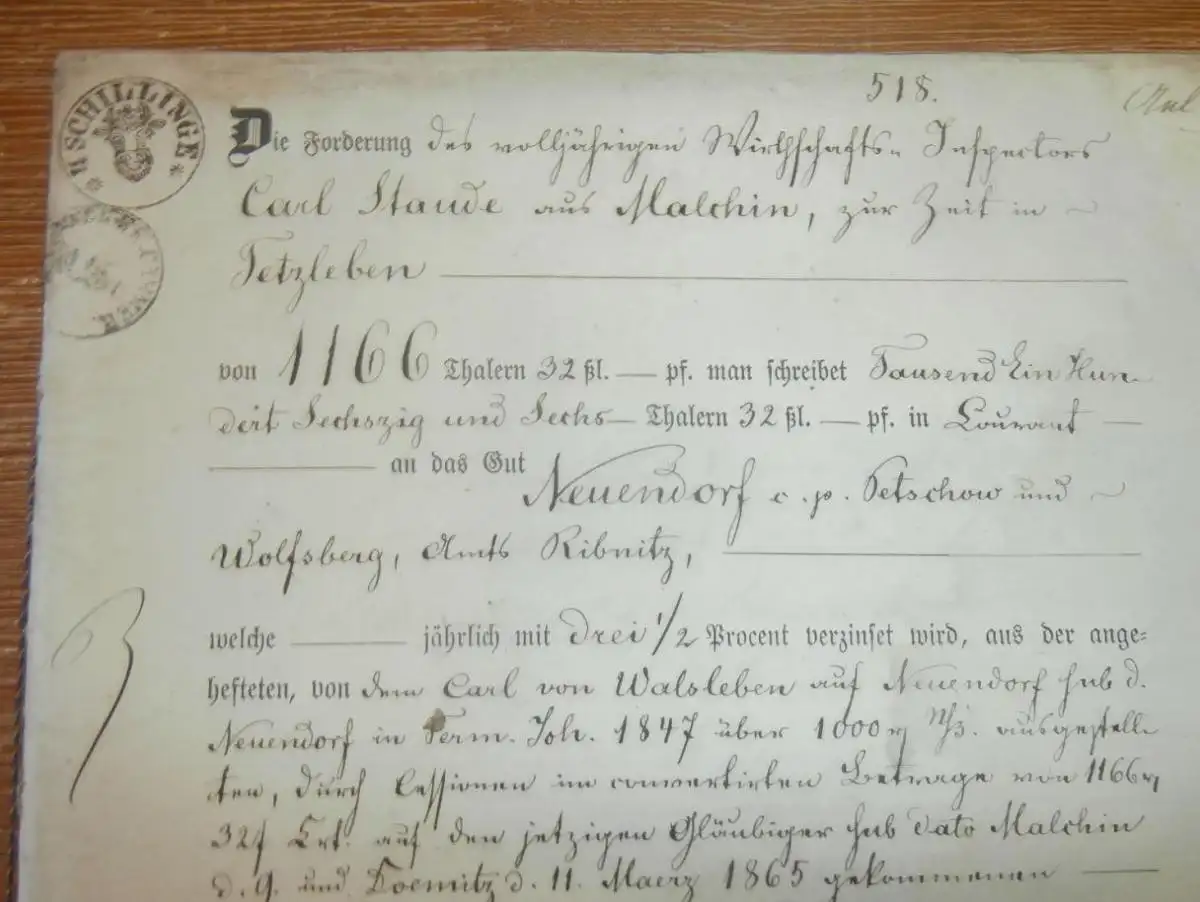 518.
SCHILLINGE
Die Forderung des volljährigen Wirthschafts-Inspectors
Carl Staude aus Malchin, zur Zeit in
Tetzleben
von 1166 Thalern 32 ßl. — pf. man schreibet Tausend Ein Hun-
dert Sechszig und Sechs — Thalern 32 ßl. — pf. in Courant —
an das Gut
Neuendorf c. p. Petschow und
Wolfsberg, Amts Ribnitz,
welche jährlich mit drei 1/2 Procent verzinset wird, aus der ange-
hefteten, von dem Carl von Walsleben auf Neuendorf sub d.
Neuendorf in Term. Joh. 1847 über 1000 N/3. ausgestell-
ten, durch Cessionen im convertirten Betrage von 1166
32 ß Crt. auf den jetzigen Gläubiger sub dato Malchin
d. 9. und Doemitz d. 11. Maerz 1865 gekommenen —